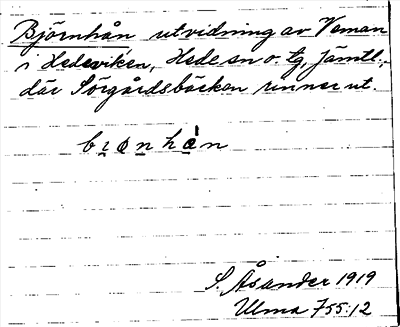 Björnhån utvidning av Veman
i Hedeviken, Hede sn o. tg, Jämtl.,
där Sörgårdsbäcken rinner ut.
S. Åsander 1919
Ulma 755:12